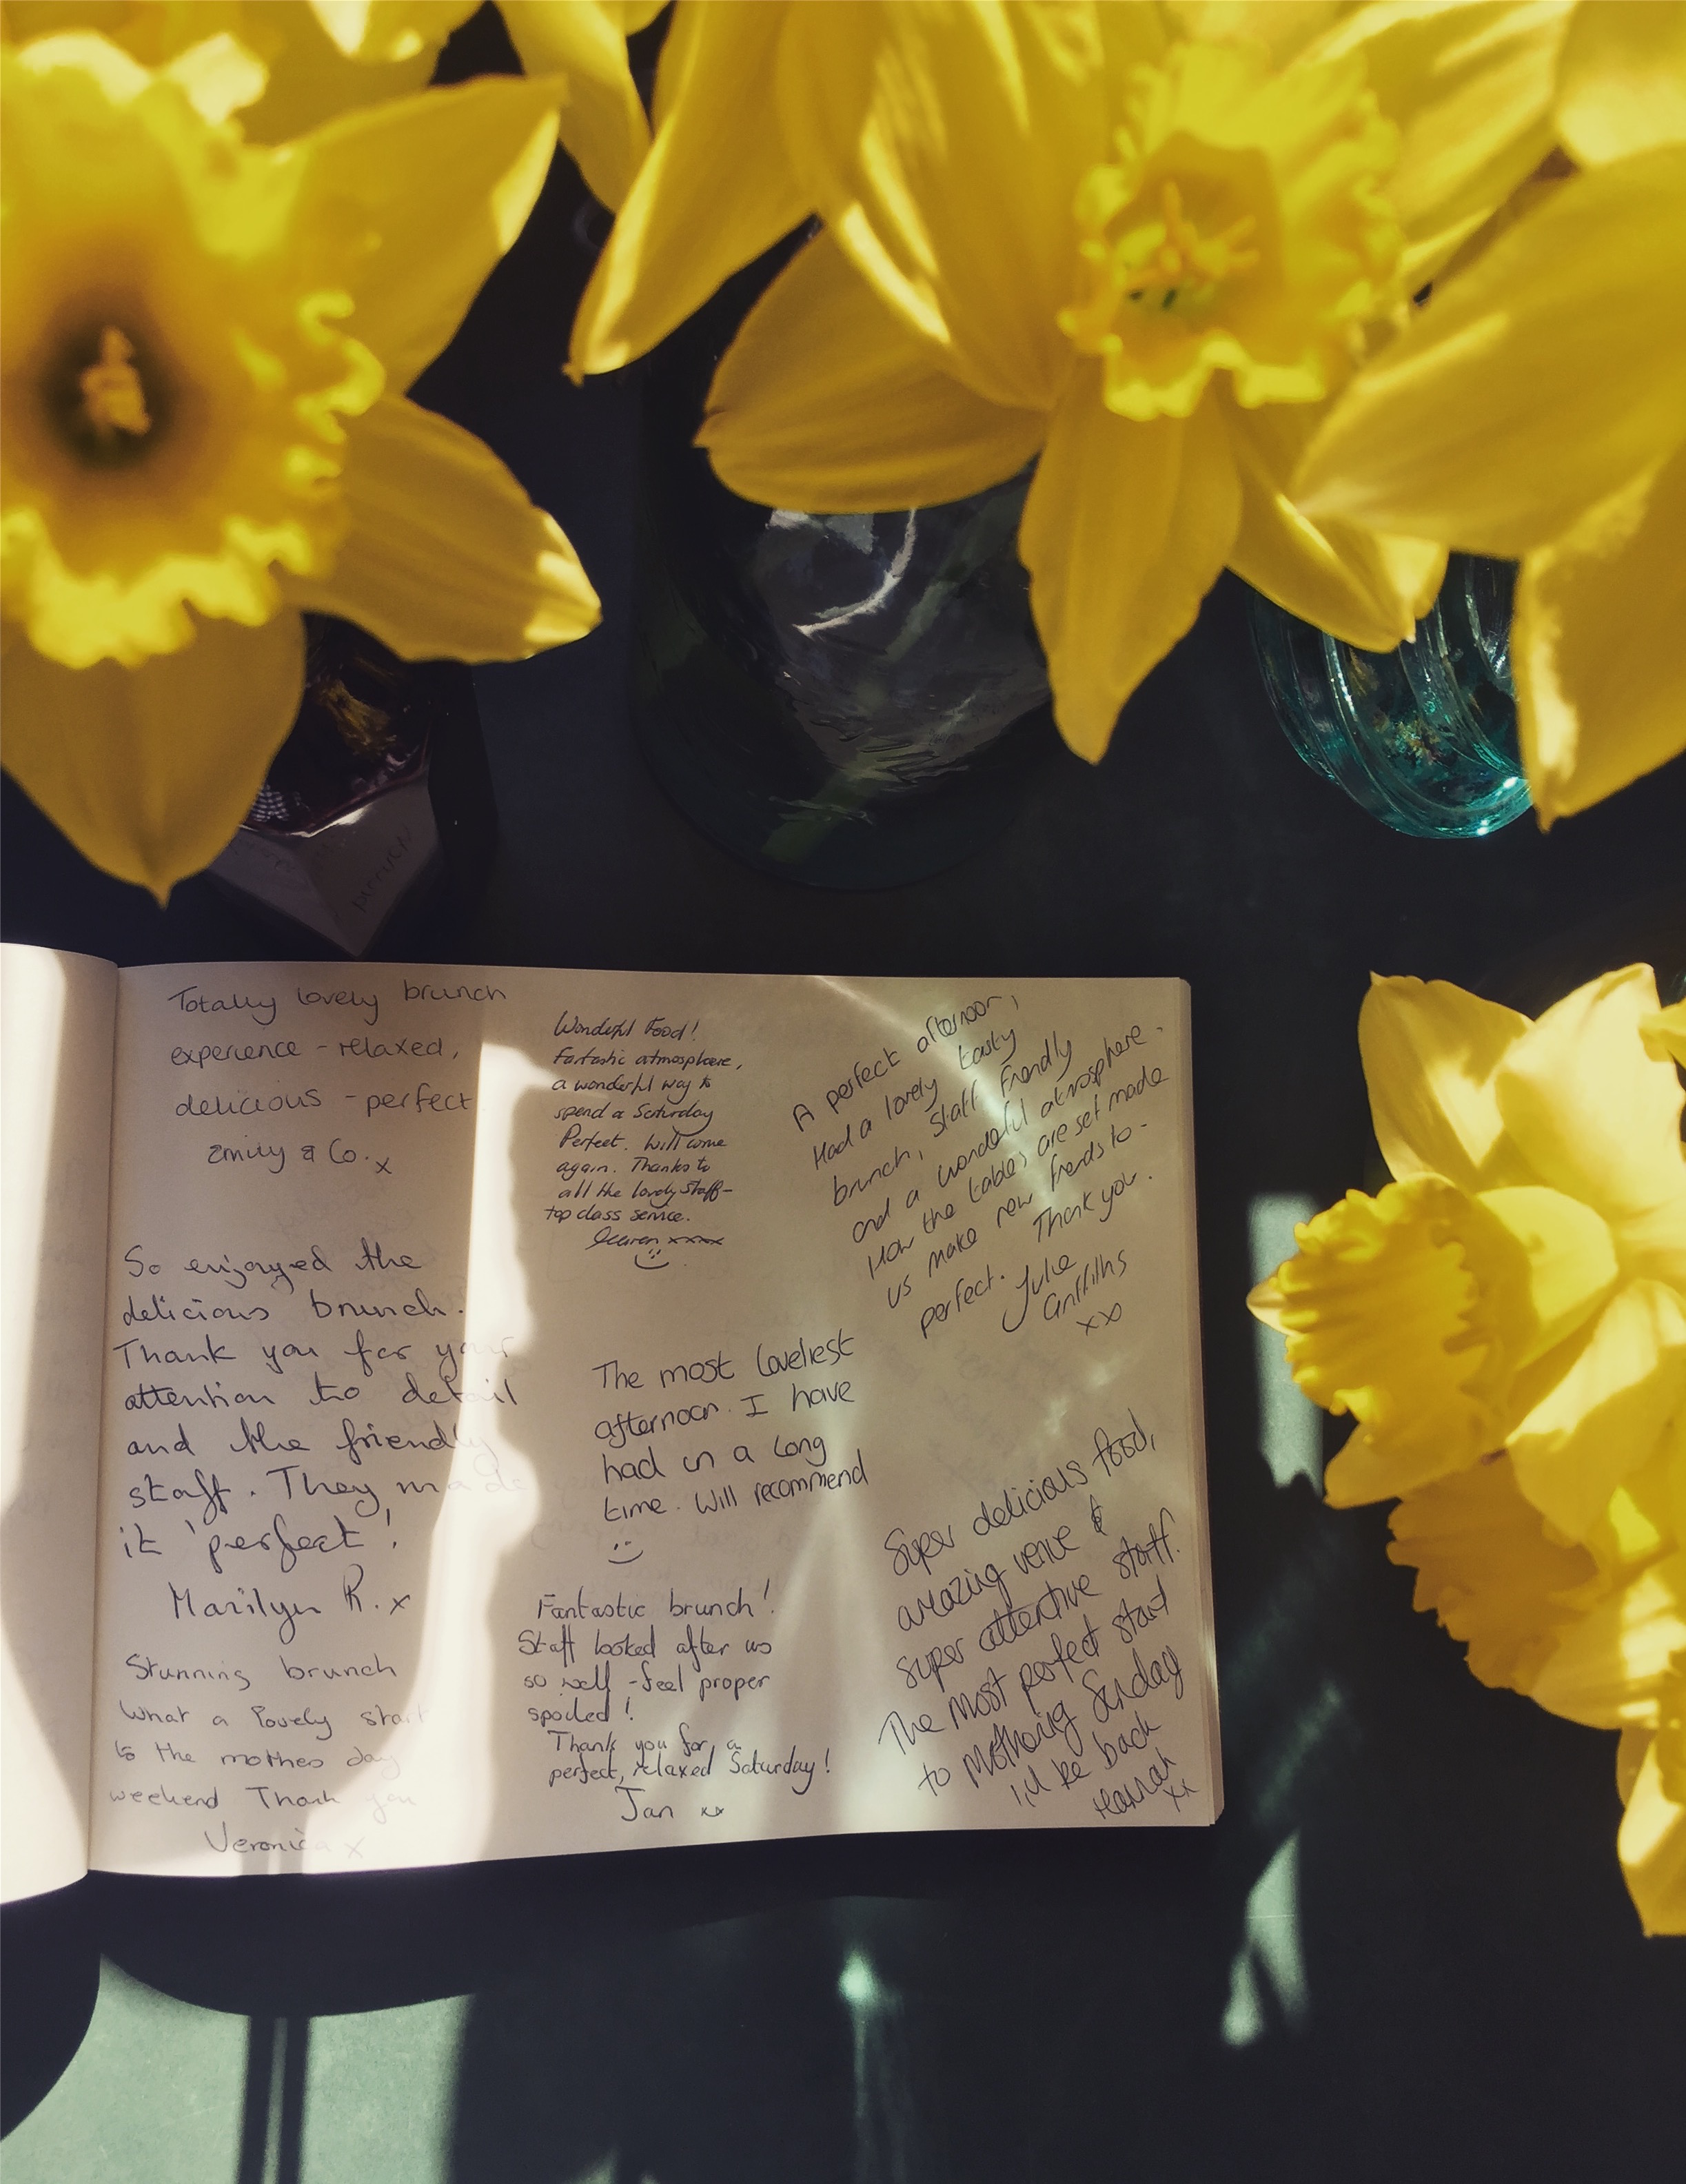 Totally lovely brunch
experience - relaxed,
delicious - perfect
Emily & Co. x
So enjoyed the
delicious brunch.
Thank you for your
attention to detail
and the friendly
staff. They made
it 'perfect'!
Marilyn R. x
Stunning brunch
What a lovely start
to the mothes day
weekend Thank you
Veronica x
Wonderful Food!
Fantastic atmosphere,
a wonderful way to
spend a Saturday
Perfect. Will come
again. Thanks to
all the lovely staff-
top class service.
xxxx
The most loveliest
afternoon. I have
had in a long
time. Will recommend
Fantastic brunch!
Staff looked after us
so well - feel proper
spoiled!
Thank you for a
perfect, relaxed Saturday!
Jan xx
A perfect afternoon,
Had a lovely tasty
brunch, Staff friendly
and a wonderful atmosphere.
How the tables are set made
us make new friends to -
perfect. Thank you.
Julie
Griffiths
xx
Super delicious food,
amazing venue &
super attentive staff.
The most perfect start
to Mothering Sunday
I'll be back
Hannah
xx